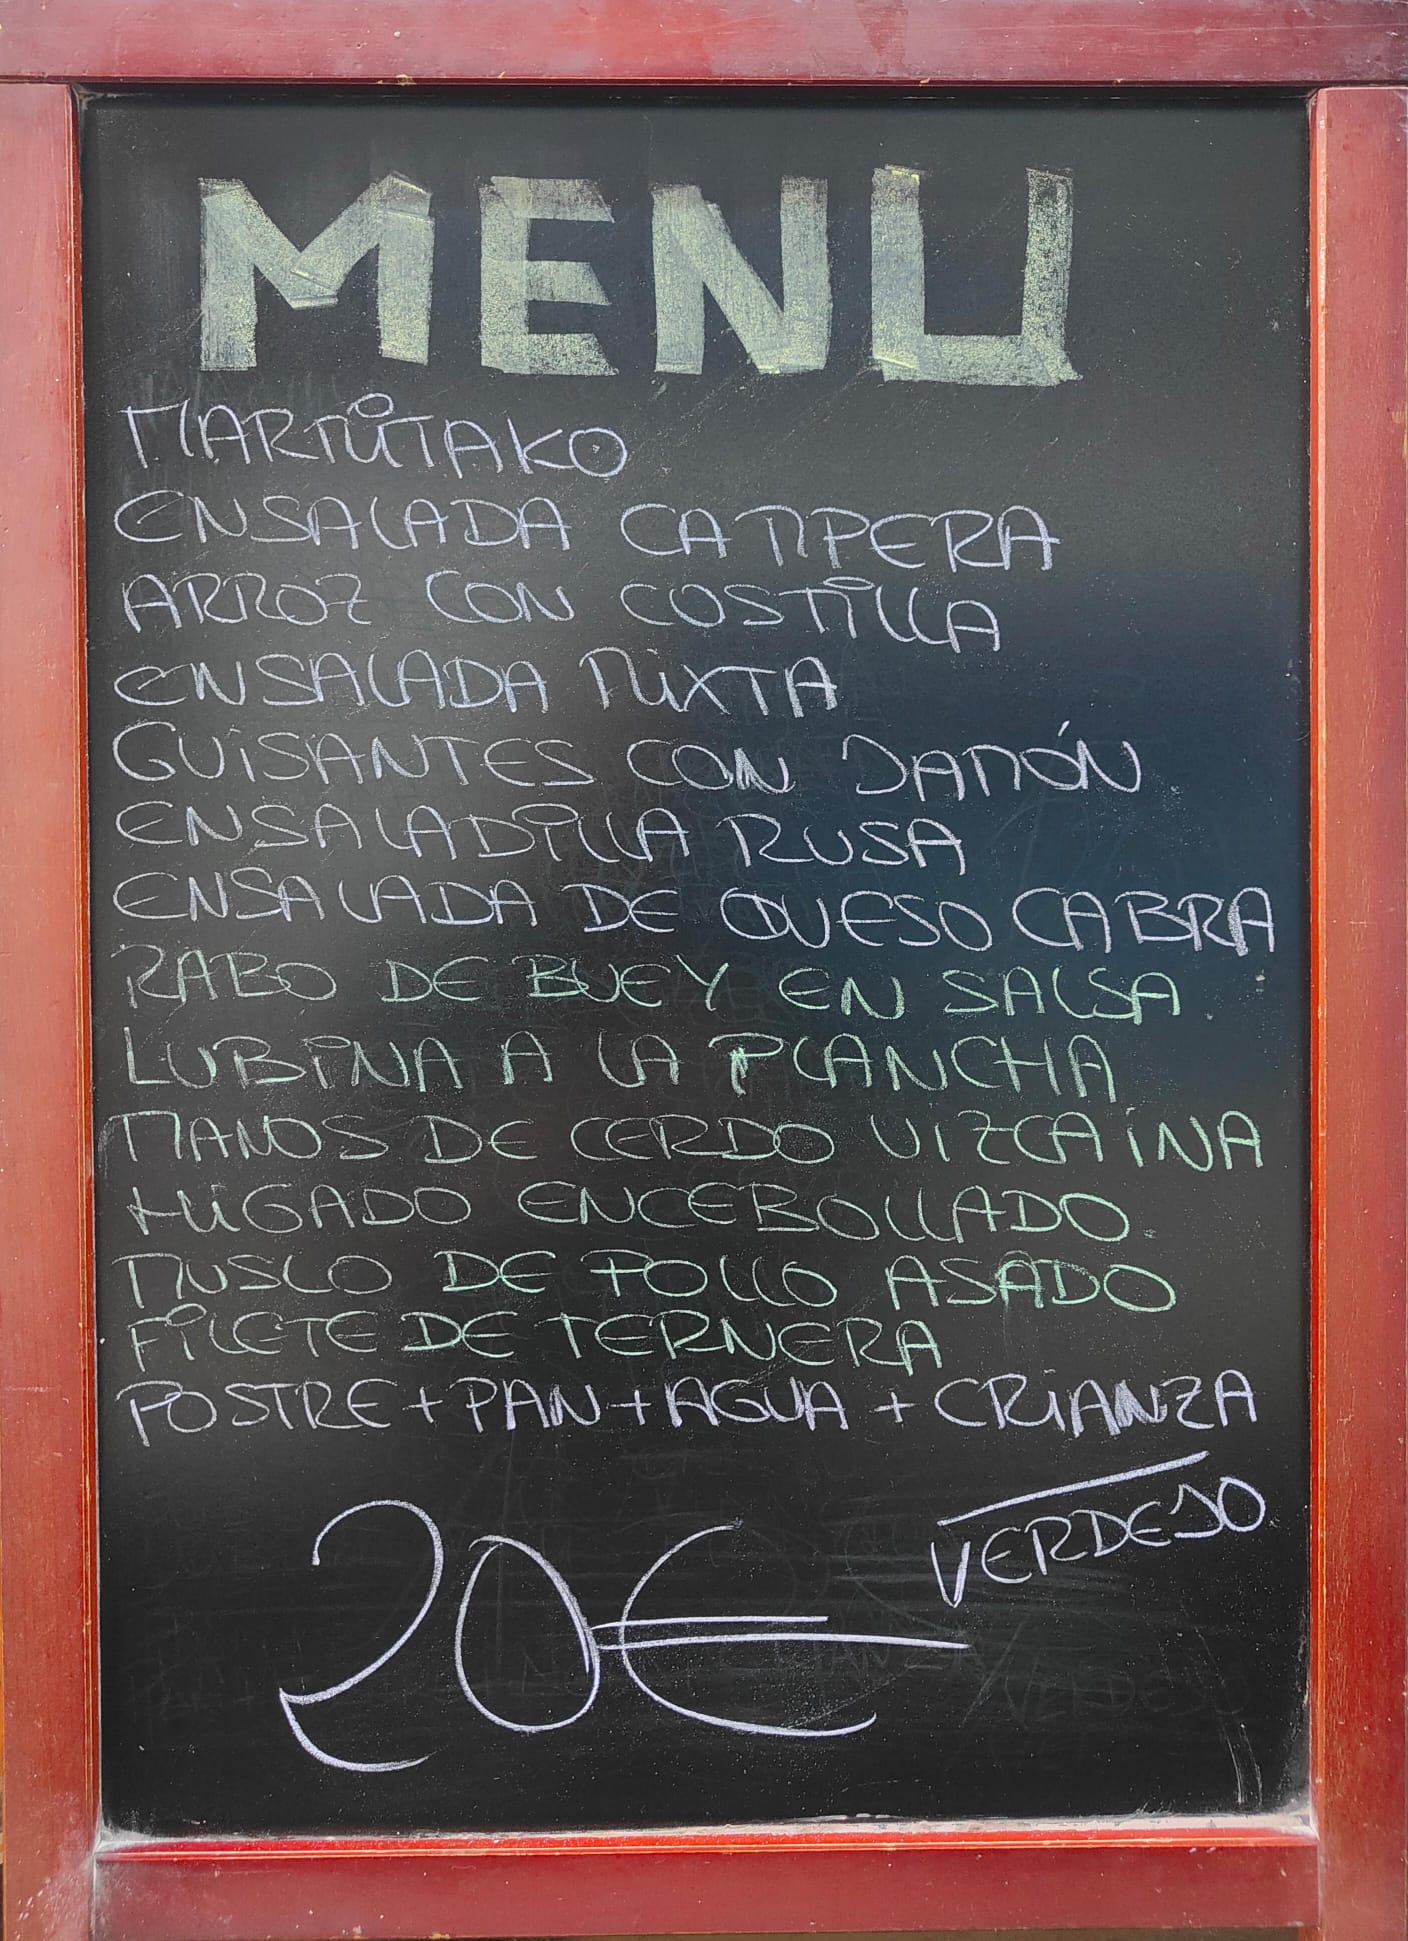 MENU
MARMITAKO
ENSALADA CAMPERA
ARROZ CON COSTILLA
ENSALADA MIXTA
GUISANTES CON JAMÓN
ENSALADILLA RUSA
ENSALADA DE QUESO CABRA
RABO DE BUEY EN SALSA
LUBINA A LA PLANCHA
MANOS DE CERDO VIZCAINA
HIGADO ENCEBOLLADO
MUSLO DE POLLO ASADO
FILETE DE TERNERA
POSTRE + PAN + AGUA + CRIANZA
VERDEJO
20€